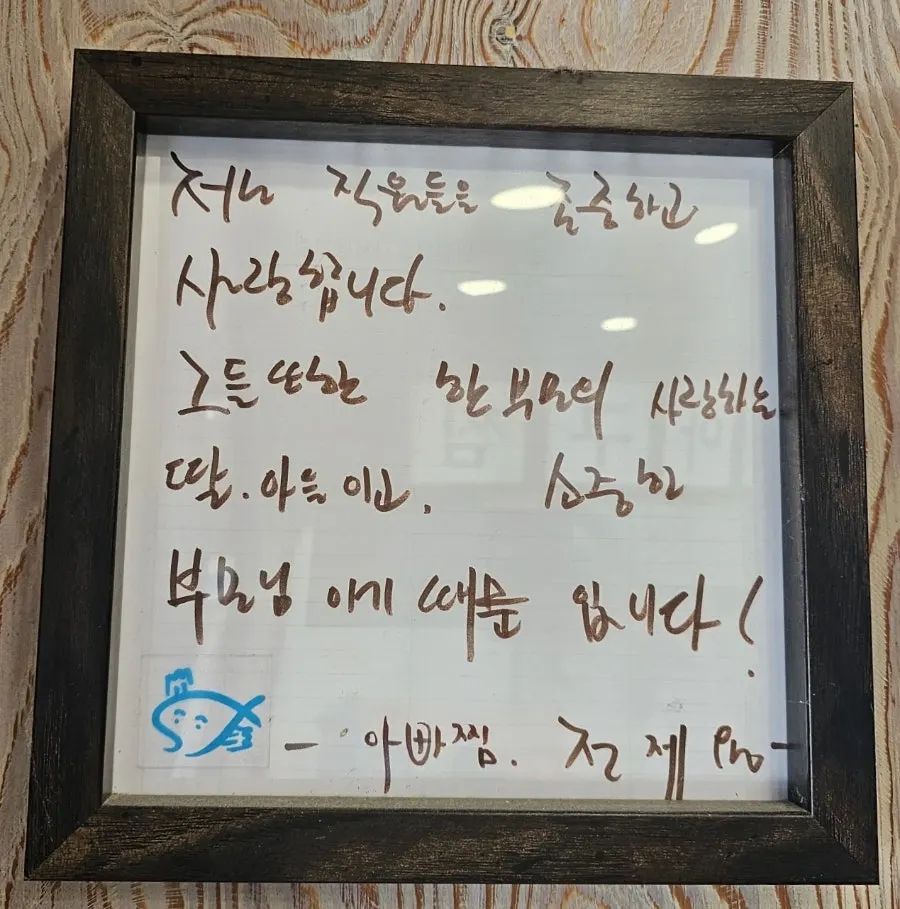 저는 직원들을 존중하고
사랑합니다.
그들 또한 한 부모의 사랑하는
딸. 아들 이고. 소중한
부모님 이기 때문 입니다!
- 아빠찜. 전 제 -